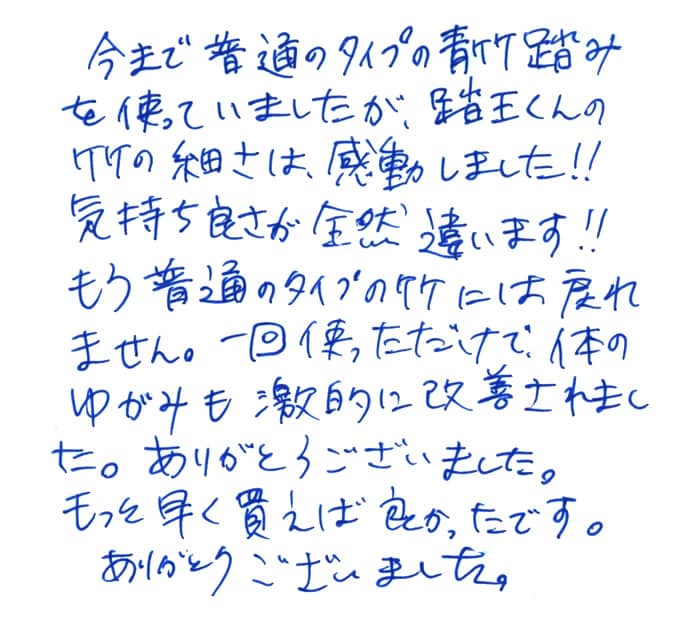 今まで普通のタイプの青竹踏み
を使っていましたが、踏王くんの
竹の細さは、感動しました!!
気持ち良さが全然違います!!
もう普通のタイプの竹には戻れ
ません。一回使っただけで、体の
ゆがみも激的に改善されまし
た。ありがとうございました。
もっと早く買えば良かったです。
ありがとうございました。